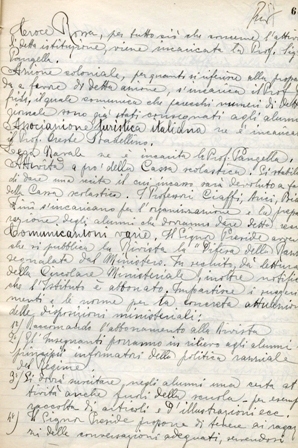 6
Croce Rossa, per tutto ciò che concerne l'attività
di detta istituzione, viene incaricata la Prof.
Panzella.
Azione coloniale, per quanto si riferisce alla propagan
da a favore di detta azione, s'incarica il Prof.
il quale comunica che parecchi numeri di
giornale sono già stati consegnati agli alunni
Associazione Turistica italiana ne è incaricato
il Prof. Oreste
Lega Navale ne è incarita la Prof. Panzella.
Attività a pro' della Cassa scolastica. Si stabilisce
di dare una recita il cui incasso sarà devoluto a favore
della Cassa scolastica. I Professori
s'incaricano per l'organizzazione e la prepa
razione degli alunni che dovranno dare detta
Comunicazioni varie. Il Signor Preside
che si pubblica la Rivista la "Difesa della Razza"
segnalata dal Ministero. In seguito dà lettura
della Circolare Ministeriale, inoltre notifica
che l'Istituto è abbonato. Impartisce i suggeri
menti e le norme per la concreta attuazione
delle disposizioni ministeriali:
1°) Raccomanda l'abbonamento alla Rivista
2°) Gl'Insegnanti porranno in rilievo agli alunni
principii informatori della politica razziale
del Regime.
3°) Si dovrà suscitare, negli alunni una certa at
tività anche fuori della scuola, per esempio
raccolta di articoli e d'illustrazioni ecc.
4°) Il Signor Preside propone di tenere ai ragaz
zi delle conversazioni adeguati, servendosi